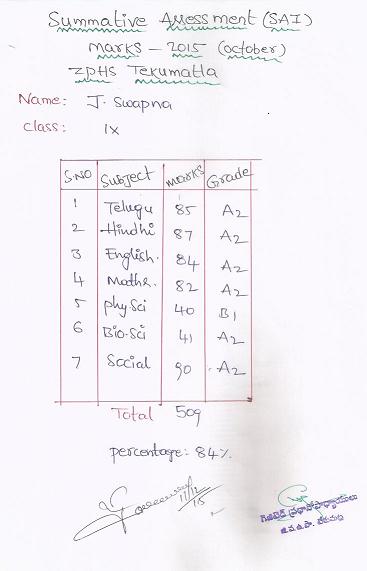 Summative Assessment (SAI)
Marks - 2015 (october)
ZPHS Tekumatla
Name: J. Swapna
class: IX
S.NO Subject marks Grade
1 Telugu 85 A2
2 Hindhi 87 A2
3 English. 84 A2
4 Maths. 82 A2
5 phy.Sci 40 B1
6 Bio.Sci 41 A2
7 Social 90 A2
Total 509
percentage: 84%.
11/12
15
గెజిటెడ్ ప్రధానోపాధ్యాయులు
జి.ప.ఉ.పా. టేకుమట్ల